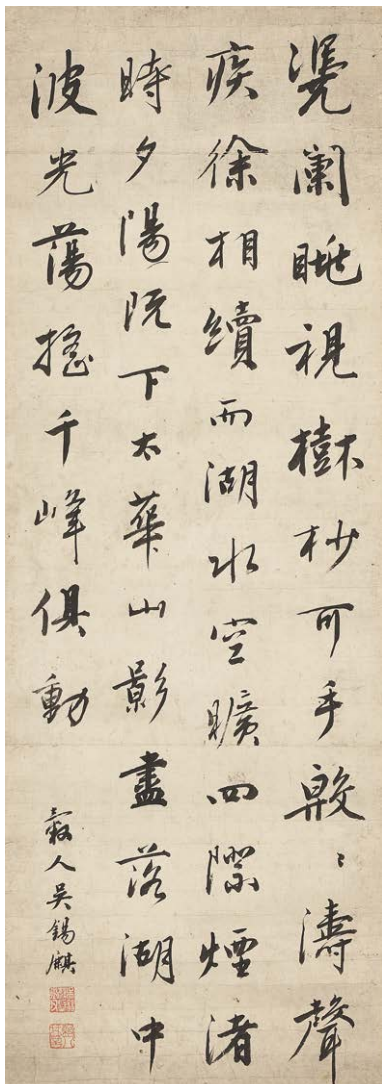 凴闌眺視樹杪可手殷〻濤聲
疾徐相續而湖水空曠四際煙渚
時夕陽既下太華山影盡落湖中
波光蕩搖千峰俱動
穀人吴錫麒